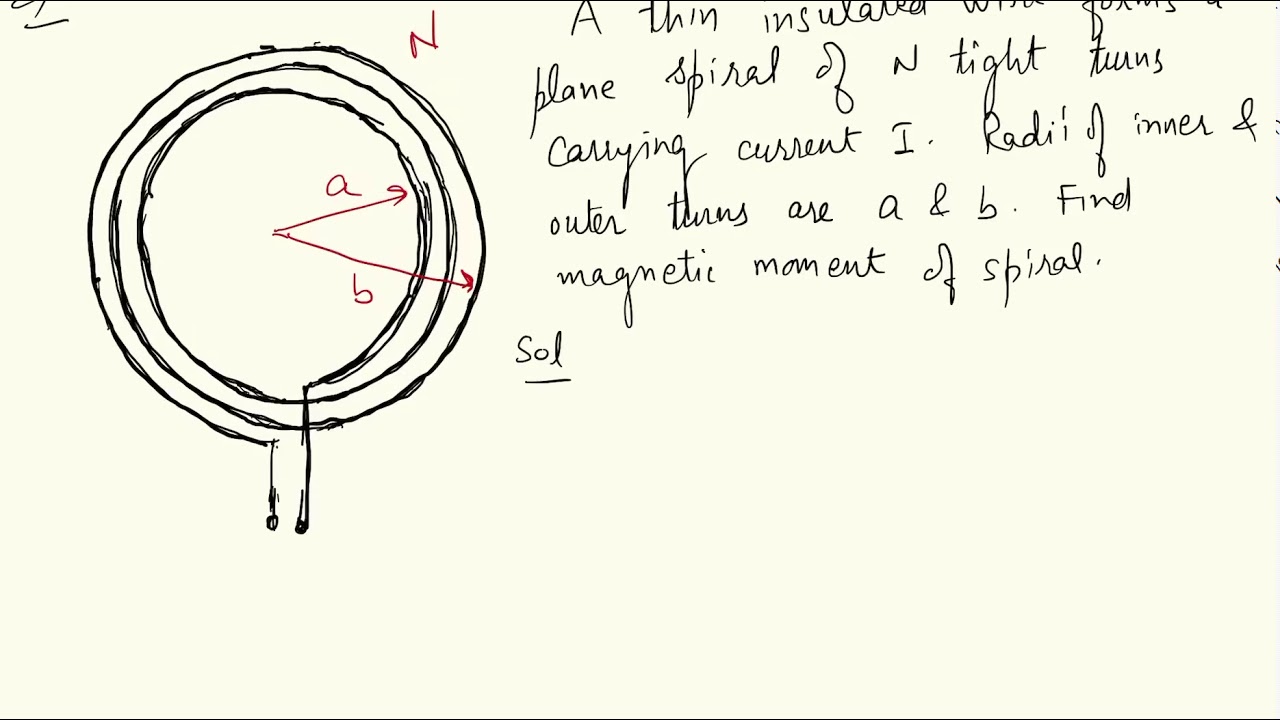 N
A thin insulated wire forms a
plane spiral of N tight turns
carrying current I. Radii of inner &
outer turns are a & b. Find
magnetic moment of spiral.
a
b
Sol